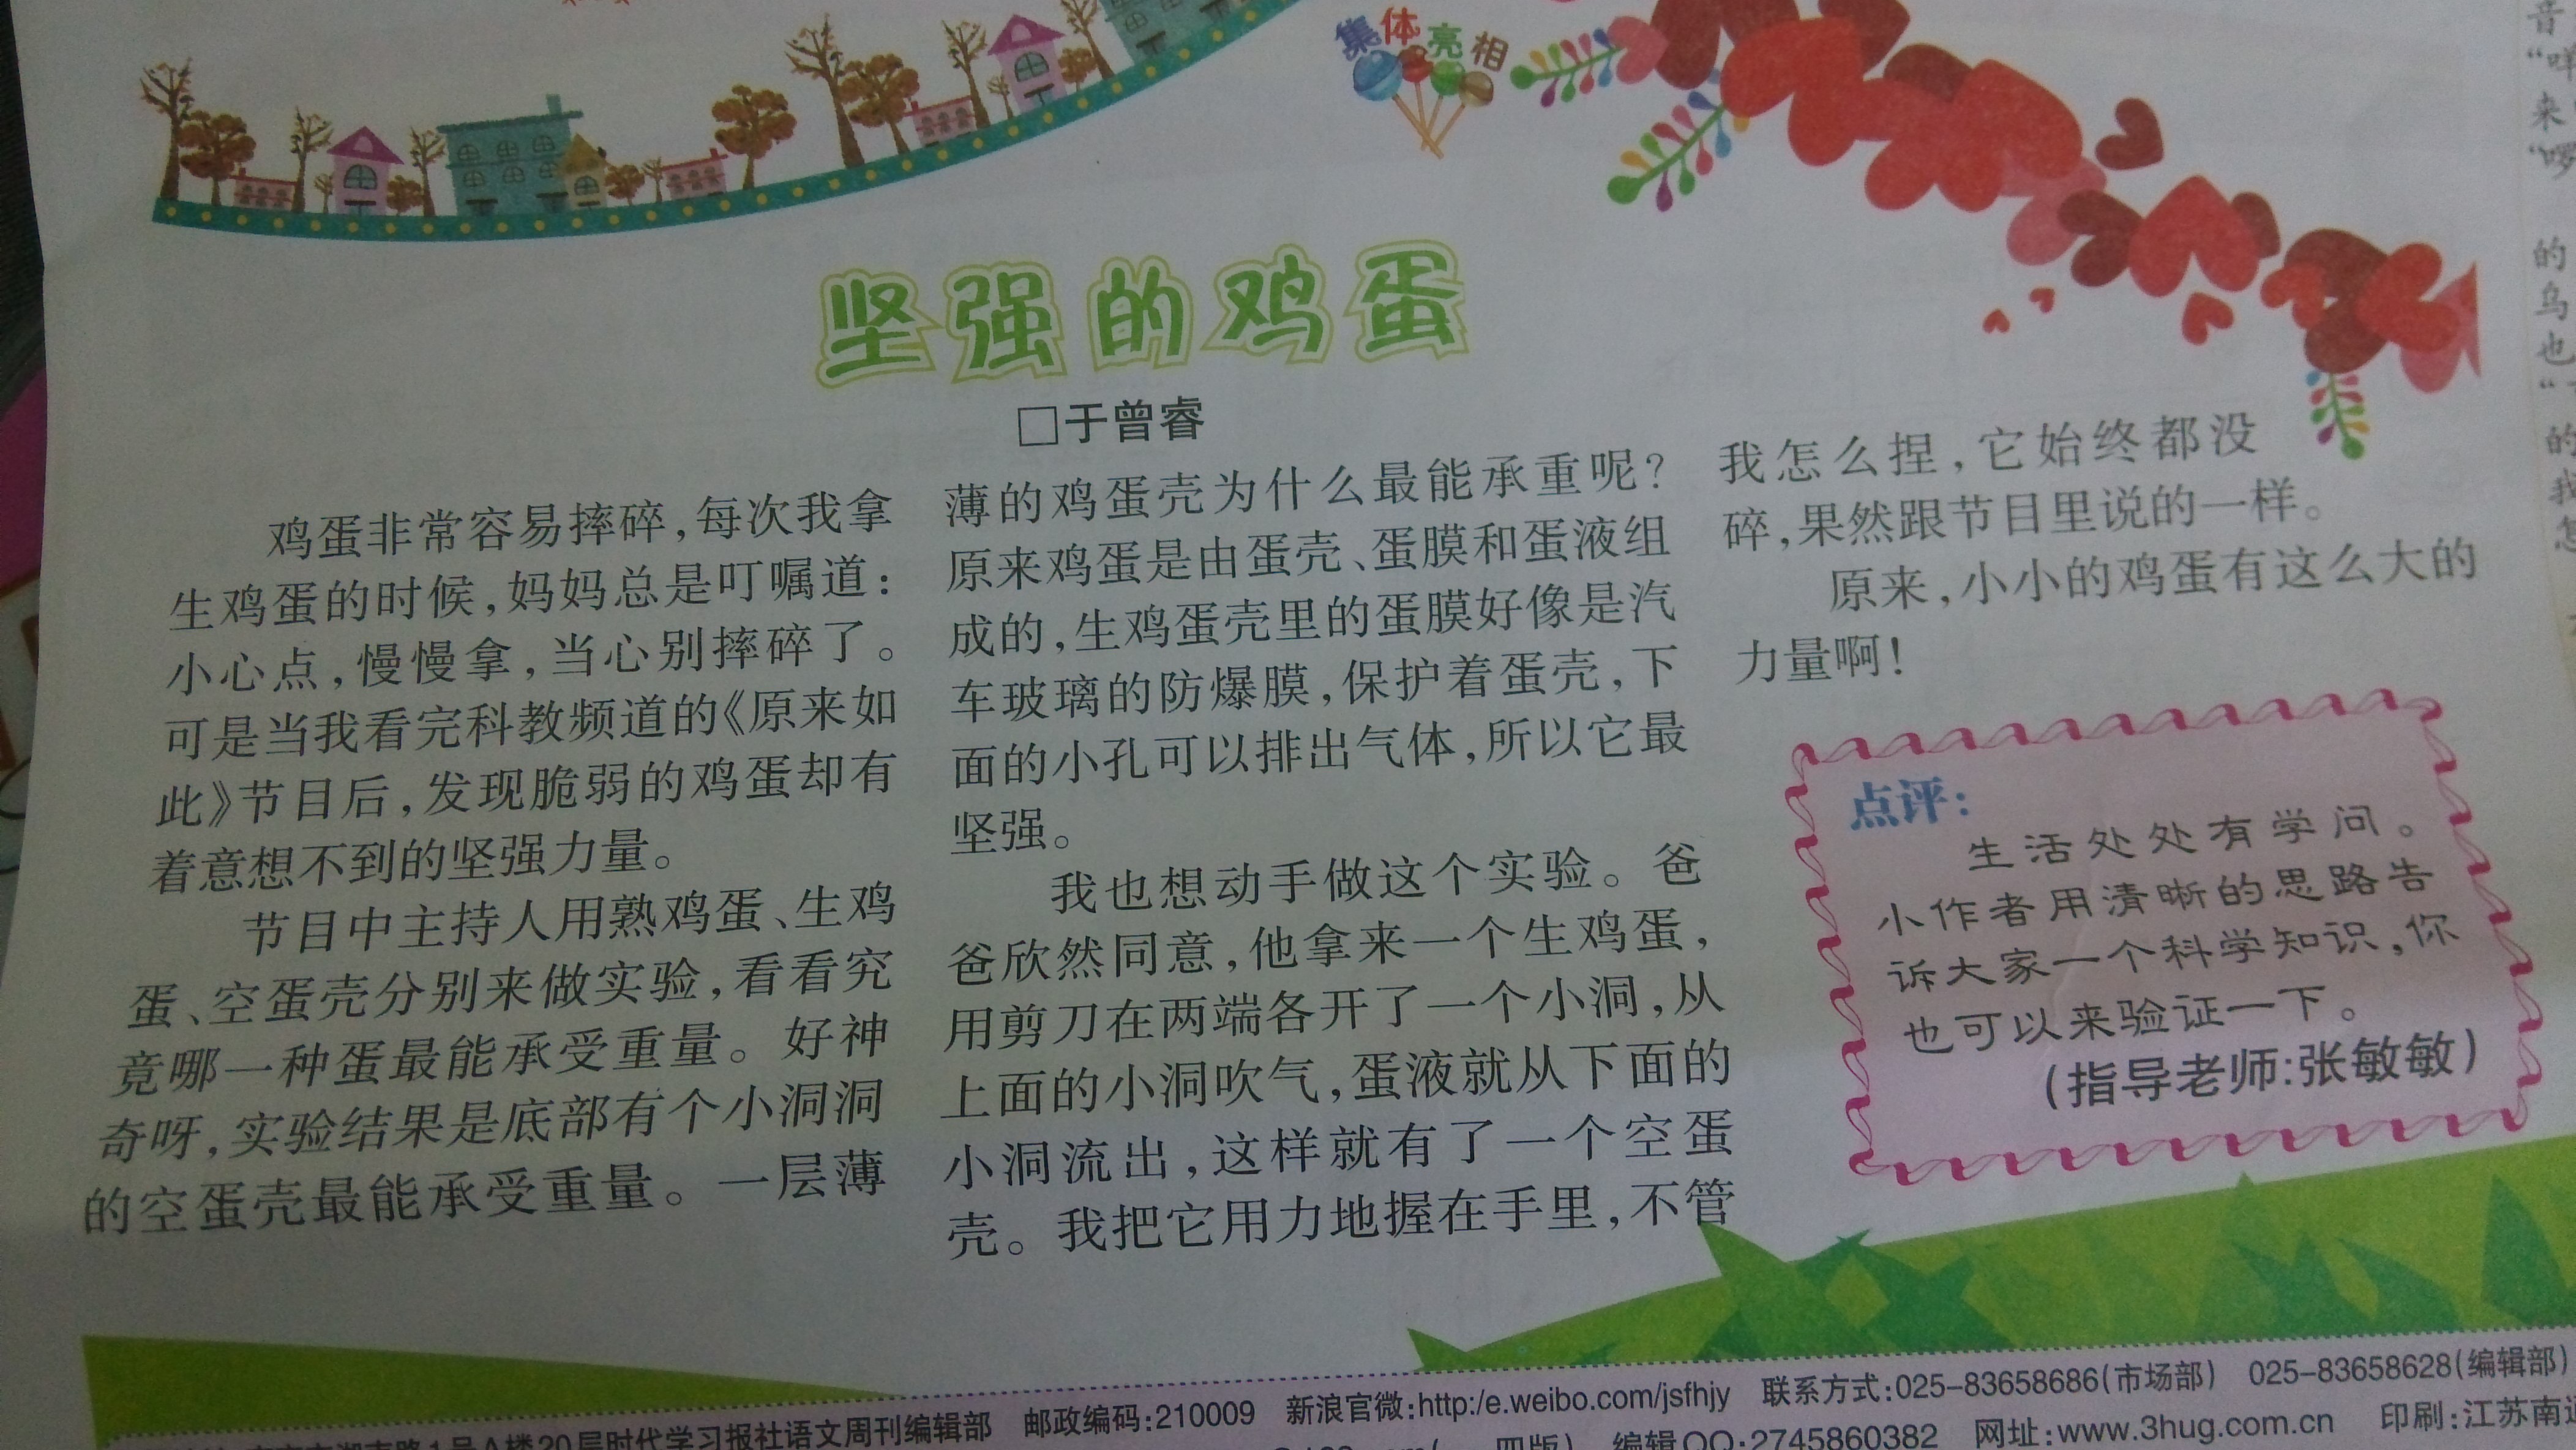 集体亮相
坚强的鸡蛋
□于曾睿
鸡蛋非常容易摔碎，每次我拿
生鸡蛋的时候，妈妈总是叮嘱道：
小心点，慢慢拿，当心别摔碎了。
可是当我看完科教频道的《原来如
此》节目后，发现脆弱的鸡蛋却有
着意想不到的坚强力量。
节目中主持人用熟鸡蛋、生鸡
蛋、空蛋壳分别来做实验，看看究
竟哪一种蛋最能承受重量。好神
奇呀，实验结果是底部有个小洞洞
的空蛋壳最能承受重量。一层薄
薄的鸡蛋壳为什么最能承重呢？
原来鸡蛋是由蛋壳、蛋膜和蛋液组
成的，生鸡蛋壳里的蛋膜好像是汽
车玻璃的防爆膜，保护着蛋壳，下
面的小孔可以排出气体，所以它最
坚强。
我也想动手做这个实验。爸
爸欣然同意，他拿来一个生鸡蛋，
用剪刀在两端各开了一个小洞，从
上面的小洞吹气，蛋液就从下面的
小洞流出，这样就有了一个空蛋
壳。我把它用力地握在手里，不管
我怎么捏，它始终都没
碎，果然跟节目里说的一样。
原来，小小的鸡蛋有这么大的
力量啊！
点评：
生活处处有学问。
小作者用清晰的思路告
诉大家一个科学知识，你
也可以来验证一下。
（指导老师：张敏敏）
音
“咩
来
“啰
的
乌
也
的
我
怎
1号A楼20层时代学习报社语文周刊编辑部 邮政编码：210009 新浪官微：http:/e.weibo.com/jsfhjy 联系方式：025-83658686（市场部） 025-83658628（编辑部）
四版） 编辑QQ：2745860382 网址：www.3hug.com.cn 印刷：江苏南通